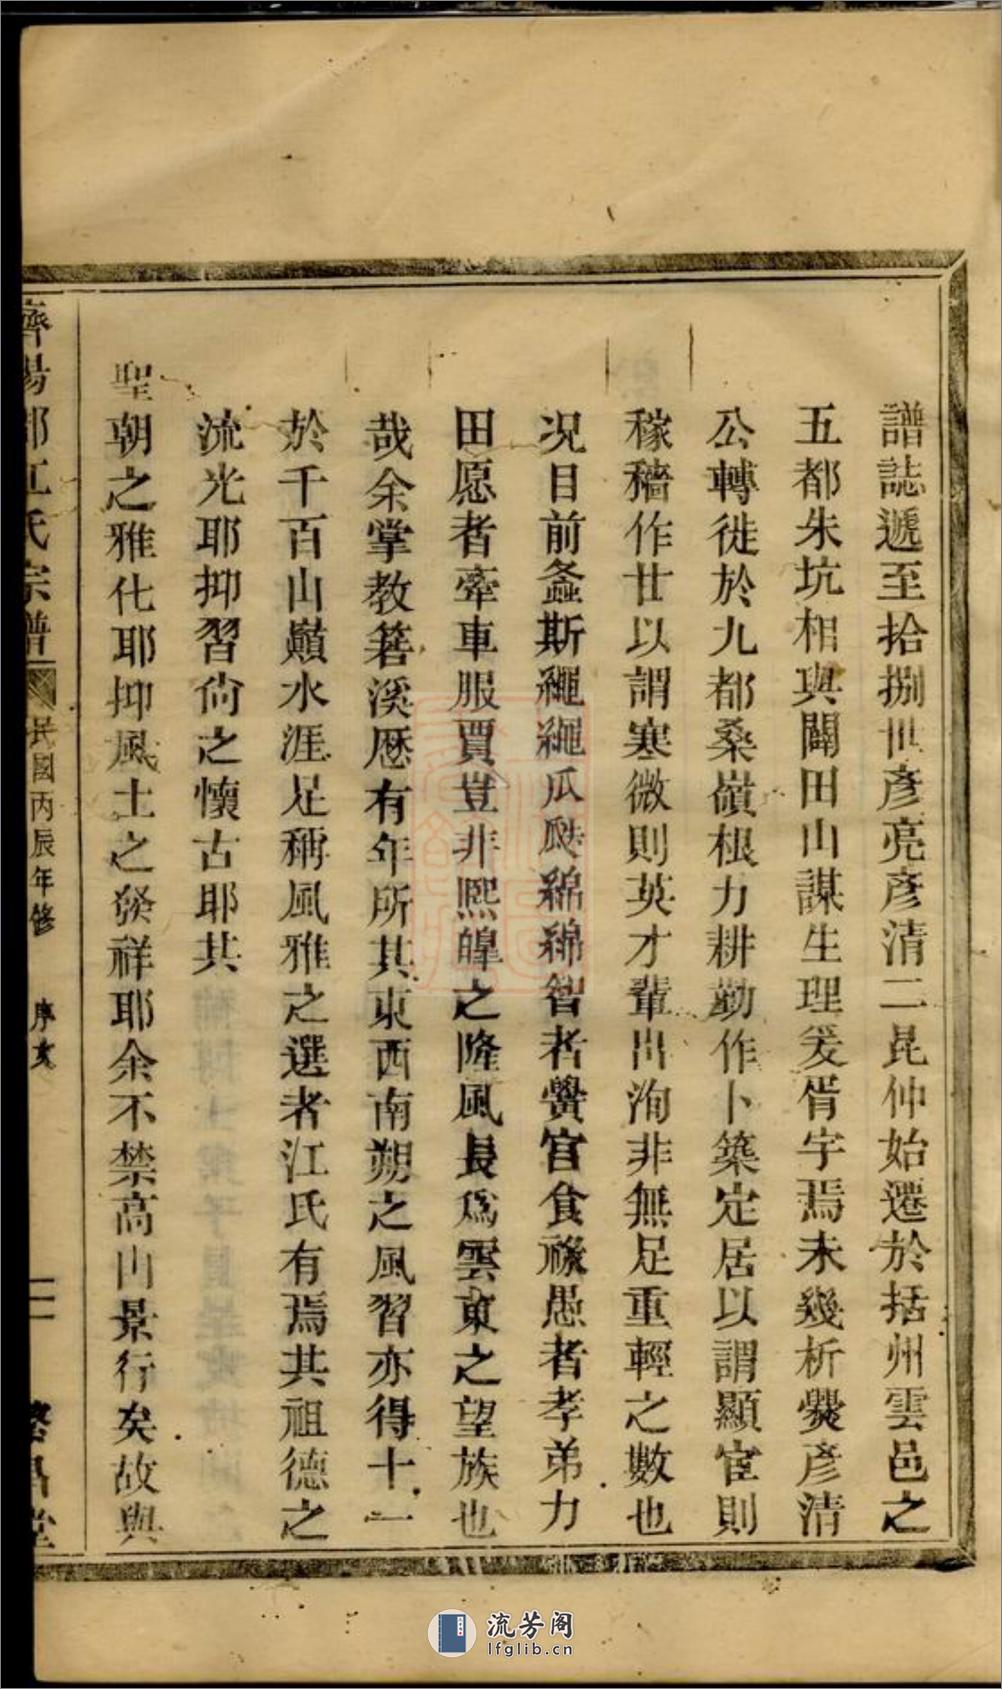 譜誌遞至拾捌世彥亮彥清二昆仲始遷於括州雲邑之
五都朱坑相與闢田山謀生理爰胥宇焉未幾析爨彥清
公轉徙於九都桑嶺根力耕勤作卜築定居以謂顯宦則
稼穡作甘以謂寒微則英才輩出洵非無足重輕之數也
况目前螽斯繩繩瓜瓞綿綿智者黌宮食祿愚者孝弟力
田愿者牽車服賈豈非熙皞之隆風長爲雲東之望族也
哉余掌教箬溪歷有年所其東西南朔之風習亦得十一
於千百山巔水涯足稱風雅之選者江氏有焉其祖德之
流光耶抑習尙之懷古耶其
聖朝之雅化耶抑風土之發祥耶余不禁高山景行矣故與
濟陽郡江氏宗譜 民國丙辰年修 序文 二 黎昌堂
流芳阁
lfglib.cn